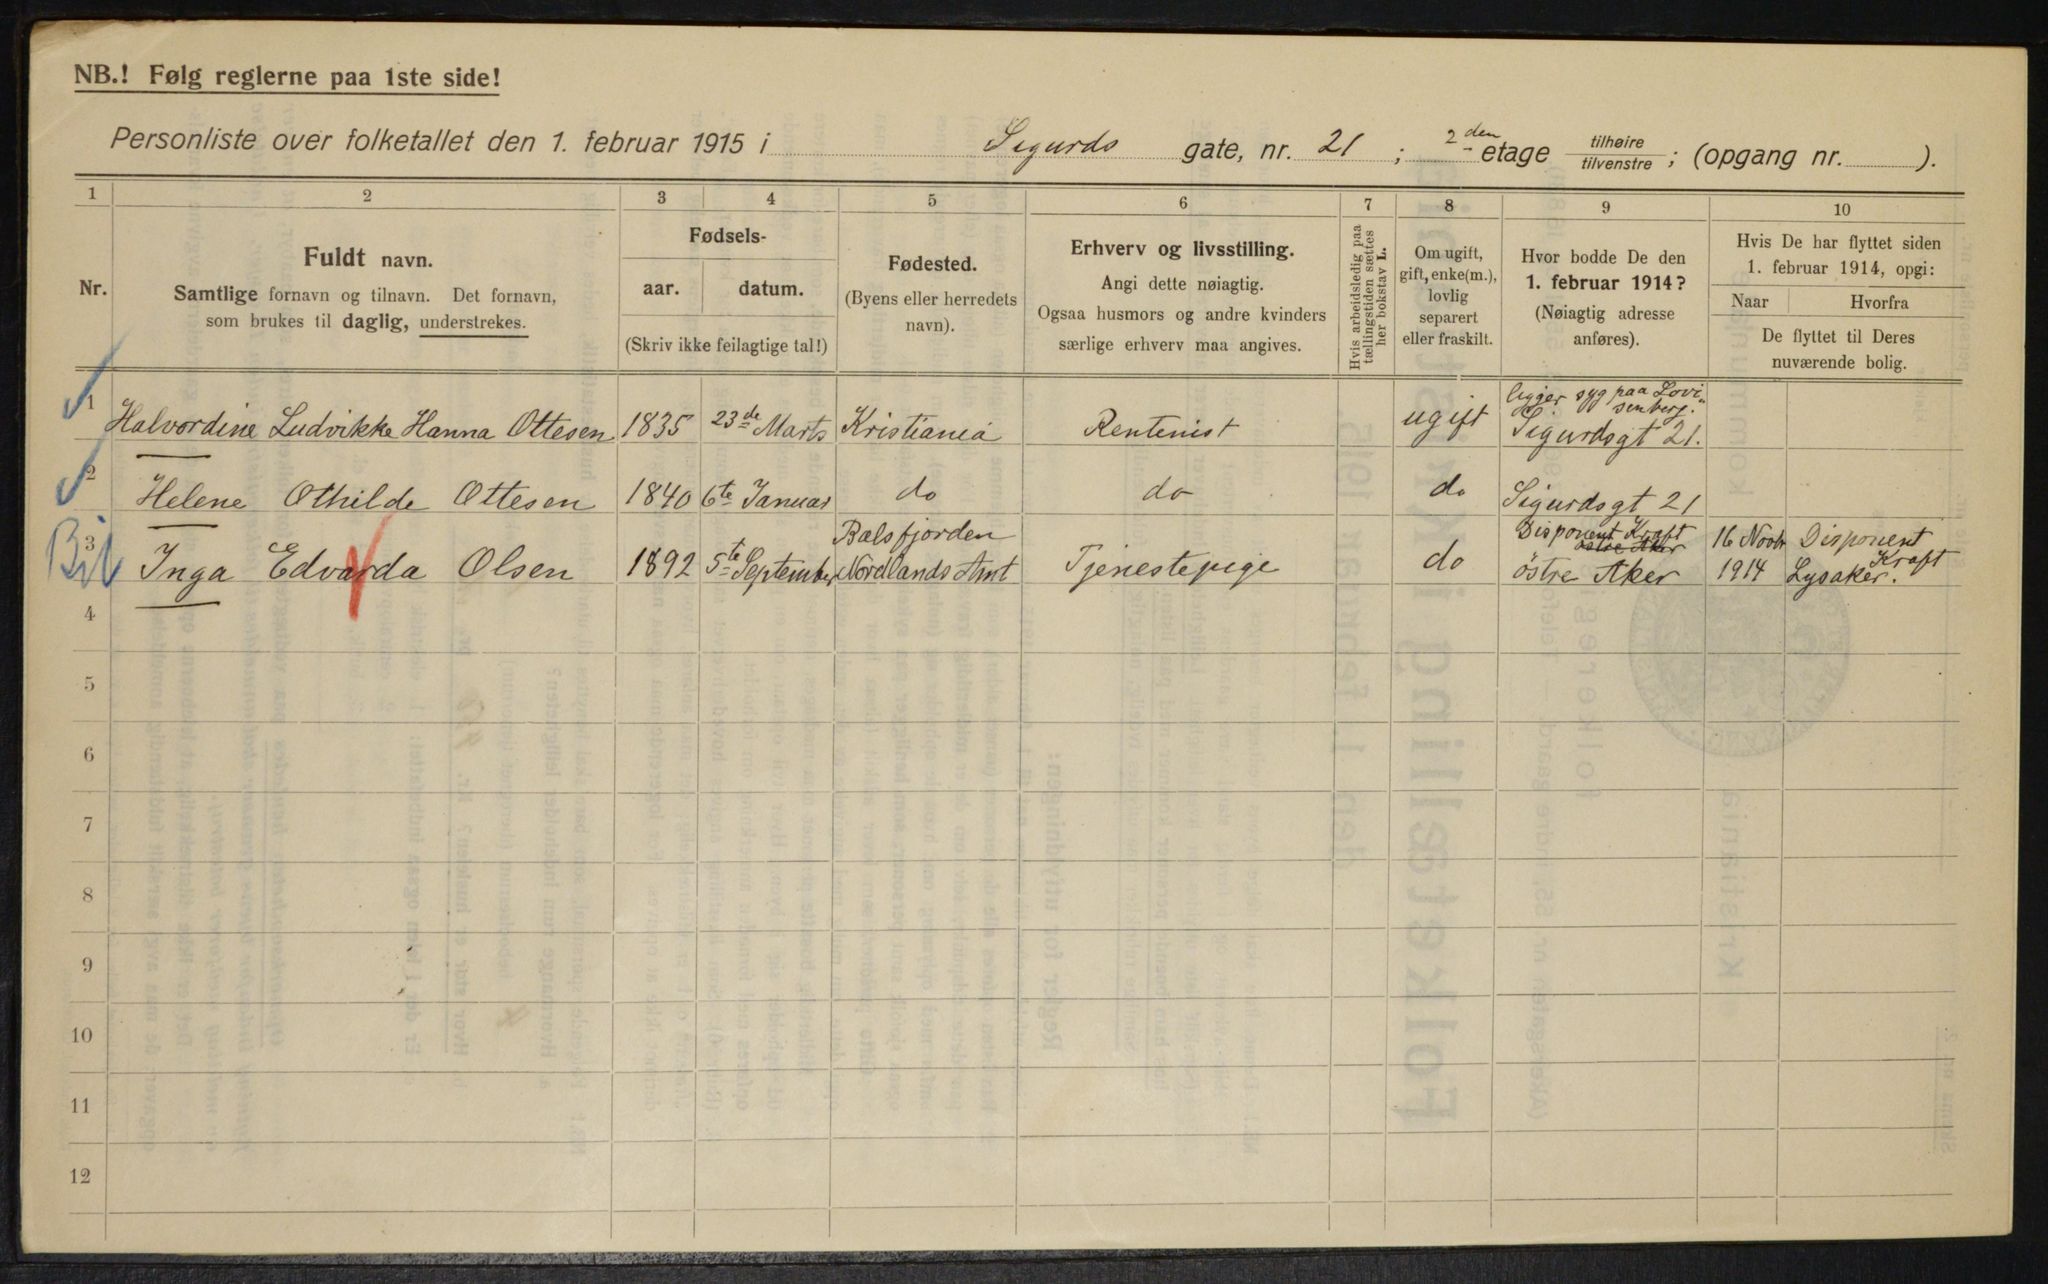 NB.! Følg reglerne paa 1ste side!
Personliste over folketallet den 1. februar 1915 i Sigurds gate, nr. 21 ; 2den etage tilhøire tilvenstre ; (opgang nr. ).
1 2 3 4 5 6 7 8 9 10
Nr.
Fuldt navn.
Samtlige fornavn og tilnavn. Det fornavn,
som brukes til daglig, understrekes.
Fødsels-
aar. datum.
(Skriv ikke feilagtige tal!)
Fødested.
(Byens eller herredets
navn).
Erhverv og livsstilling.
Angi dette nøiagtig.
Ogsaa husmors og andre kvinders
særlige erhverv maa angives.
Hvis arbeidsledig paa
tællingstiden sættes
her bokstav L.
Om ugift,
gift, enke(m.),
lovlig
separert
eller fraskilt.
Hvor bodde De den
1. februar 1914?
(Nøiagtig adresse
anføres).
Hvis De har flyttet siden
1. februar 1914, opgi:
Naar Hvorfra
De flyttet til Deres
nuværende bolig.
1 Halvordine Ludvikke Hanna Ottesen 1835 23de Marts Kristiania Rentenist ugift ligger syg paa Lovi-
senberg.
Sigurdsgt 21.
2 Helene Othilde Ottesen 1840 6te Januar do do do Sigurdsgt 21
Bil 3 Inga Edvarda Olsen 1892 5te September Balsfjorden
Nordlands Amt Tjenestepige do Disponent Kraft
östre Aker
östre Aker
16 Novbr
1914
Disponent
Kraft
Lysaker.
4
5
6
7
8
9
10
11
12